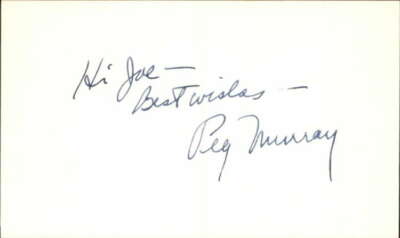 Hi Joe —
Best wishes —
Peg Murray